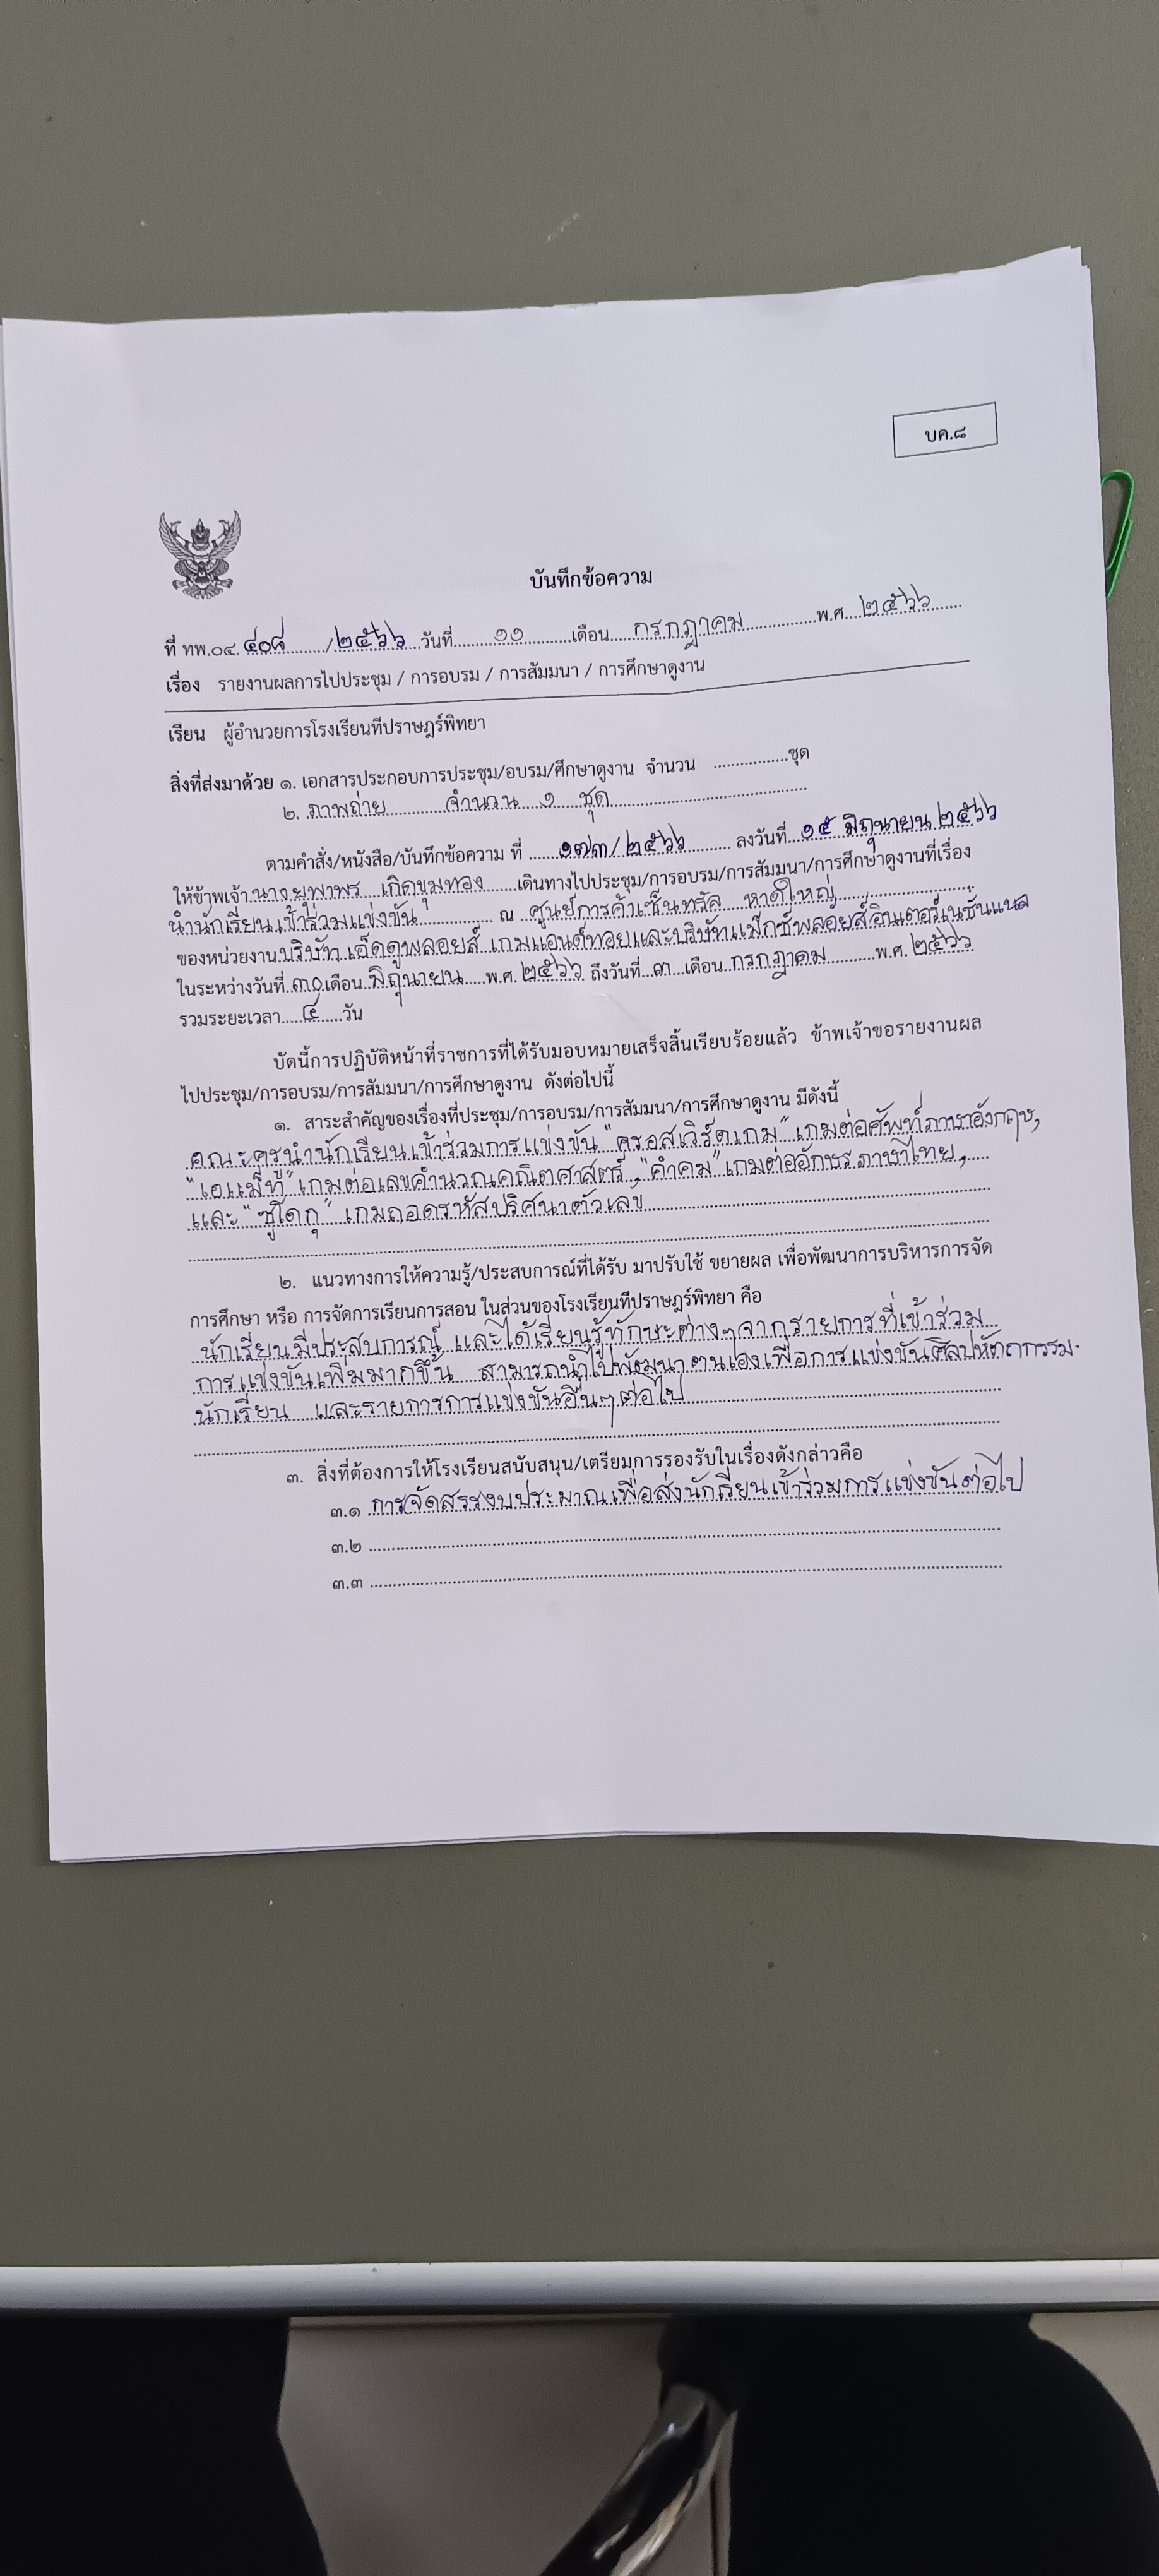 บค.๘
บันทึกข้อความ
ที่ ทพ.๐๔.๔๐๘/๒๕๖๖ วันที่ ๑๑ เดือน กรกฎาคม พ.ศ. ๒๕๖๖
เรื่อง รายงานผลการไปประชุม / การอบรม / การสัมมนา / การศึกษาดูงาน
เรียน ผู้อำนวยการโรงเรียนทีปราษฎร์พิทยา
สิ่งที่ส่งมาด้วย ๑. เอกสารประกอบการประชุม/อบรม/ศึกษาดูงาน จำนวน ................ชุด
๒. ภาพถ่าย จำนวน ๑ ชุด
ตามคำสั่ง/หนังสือ/บันทึกข้อความ ที่ ๑๗๓/๒๕๖๖ ลงวันที่ ๑๕ มิถุนายน ๒๕๖๖
ให้ข้าพเจ้า นางยุพาพร เกิดขุมทอง เดินทางไปประชุม/การอบรม/การสัมมนา/การศึกษาดูงานที่เรื่อง
นำนักเรียนเข้าร่วมแข่งขัน ณ ศูนย์การค้าเซ็นทรัล หาดใหญ่
ของหน่วยงาน บริษัท เอ็ดดูพลอยส์ เกมแอนด์ทอยและบริษัทแม็กซ์พลอยส์อินเตอร์เนชั่นแนล
ในระหว่างวันที่ ๓๐ เดือน มิถุนายน พ.ศ. ๒๕๖๖ ถึงวันที่ ๓ เดือน กรกฎาคม พ.ศ. ๒๕๖๖
รวมระยะเวลา ๔ วัน
บัดนี้การปฏิบัติหน้าที่ราชการที่ได้รับมอบหมายเสร็จสิ้นเรียบร้อยแล้ว ข้าพเจ้าขอรายงานผล
ไปประชุม/การอบรม/การสัมมนา/การศึกษาดูงาน ดังต่อไปนี้
๑. สาระสำคัญของเรื่องที่ประชุม/การอบรม/การสัมมนา/การศึกษาดูงาน มีดังนี้
คณะครูนำนักเรียนเข้าร่วมการแข่งขัน "ครอสเวิร์ดเกม" เกมต่อศัพท์ภาษาอังกฤษ,
"เอแม็ท" เกมต่อเลขคำนวณคณิตศาสตร์, "คำคม" เกมต่ออักษรภาษาไทย,
และ "ซูโดกุ" เกมถอดรหัสปริศนาตัวเลข
๒. แนวทางการให้ความรู้/ประสบการณ์ที่ได้รับ มาปรับใช้ ขยายผล เพื่อพัฒนาการบริหารการจัด
การศึกษา หรือ การจัดการเรียนการสอน ในส่วนของโรงเรียนทีปราษฎร์พิทยา คือ
นักเรียนมีประสบการณ์ และได้เรียนรู้ทักษะต่างๆจากรายการที่เข้าร่วม
การแข่งขันเพิ่มมากขึ้น สามารถนำไปพัฒนาตนเองเพื่อการแข่งขันศิลปหัตถกรรม
นักเรียน และรายการการแข่งขันอื่นๆต่อไป
๓. สิ่งที่ต้องการให้โรงเรียนสนับสนุน/เตรียมการรองรับในเรื่องดังกล่าวคือ
๓.๑ การจัดสรรงบประมาณเพื่อส่งนักเรียนเข้าร่วมการแข่งขันต่อไป
๓.๒
๓.๓